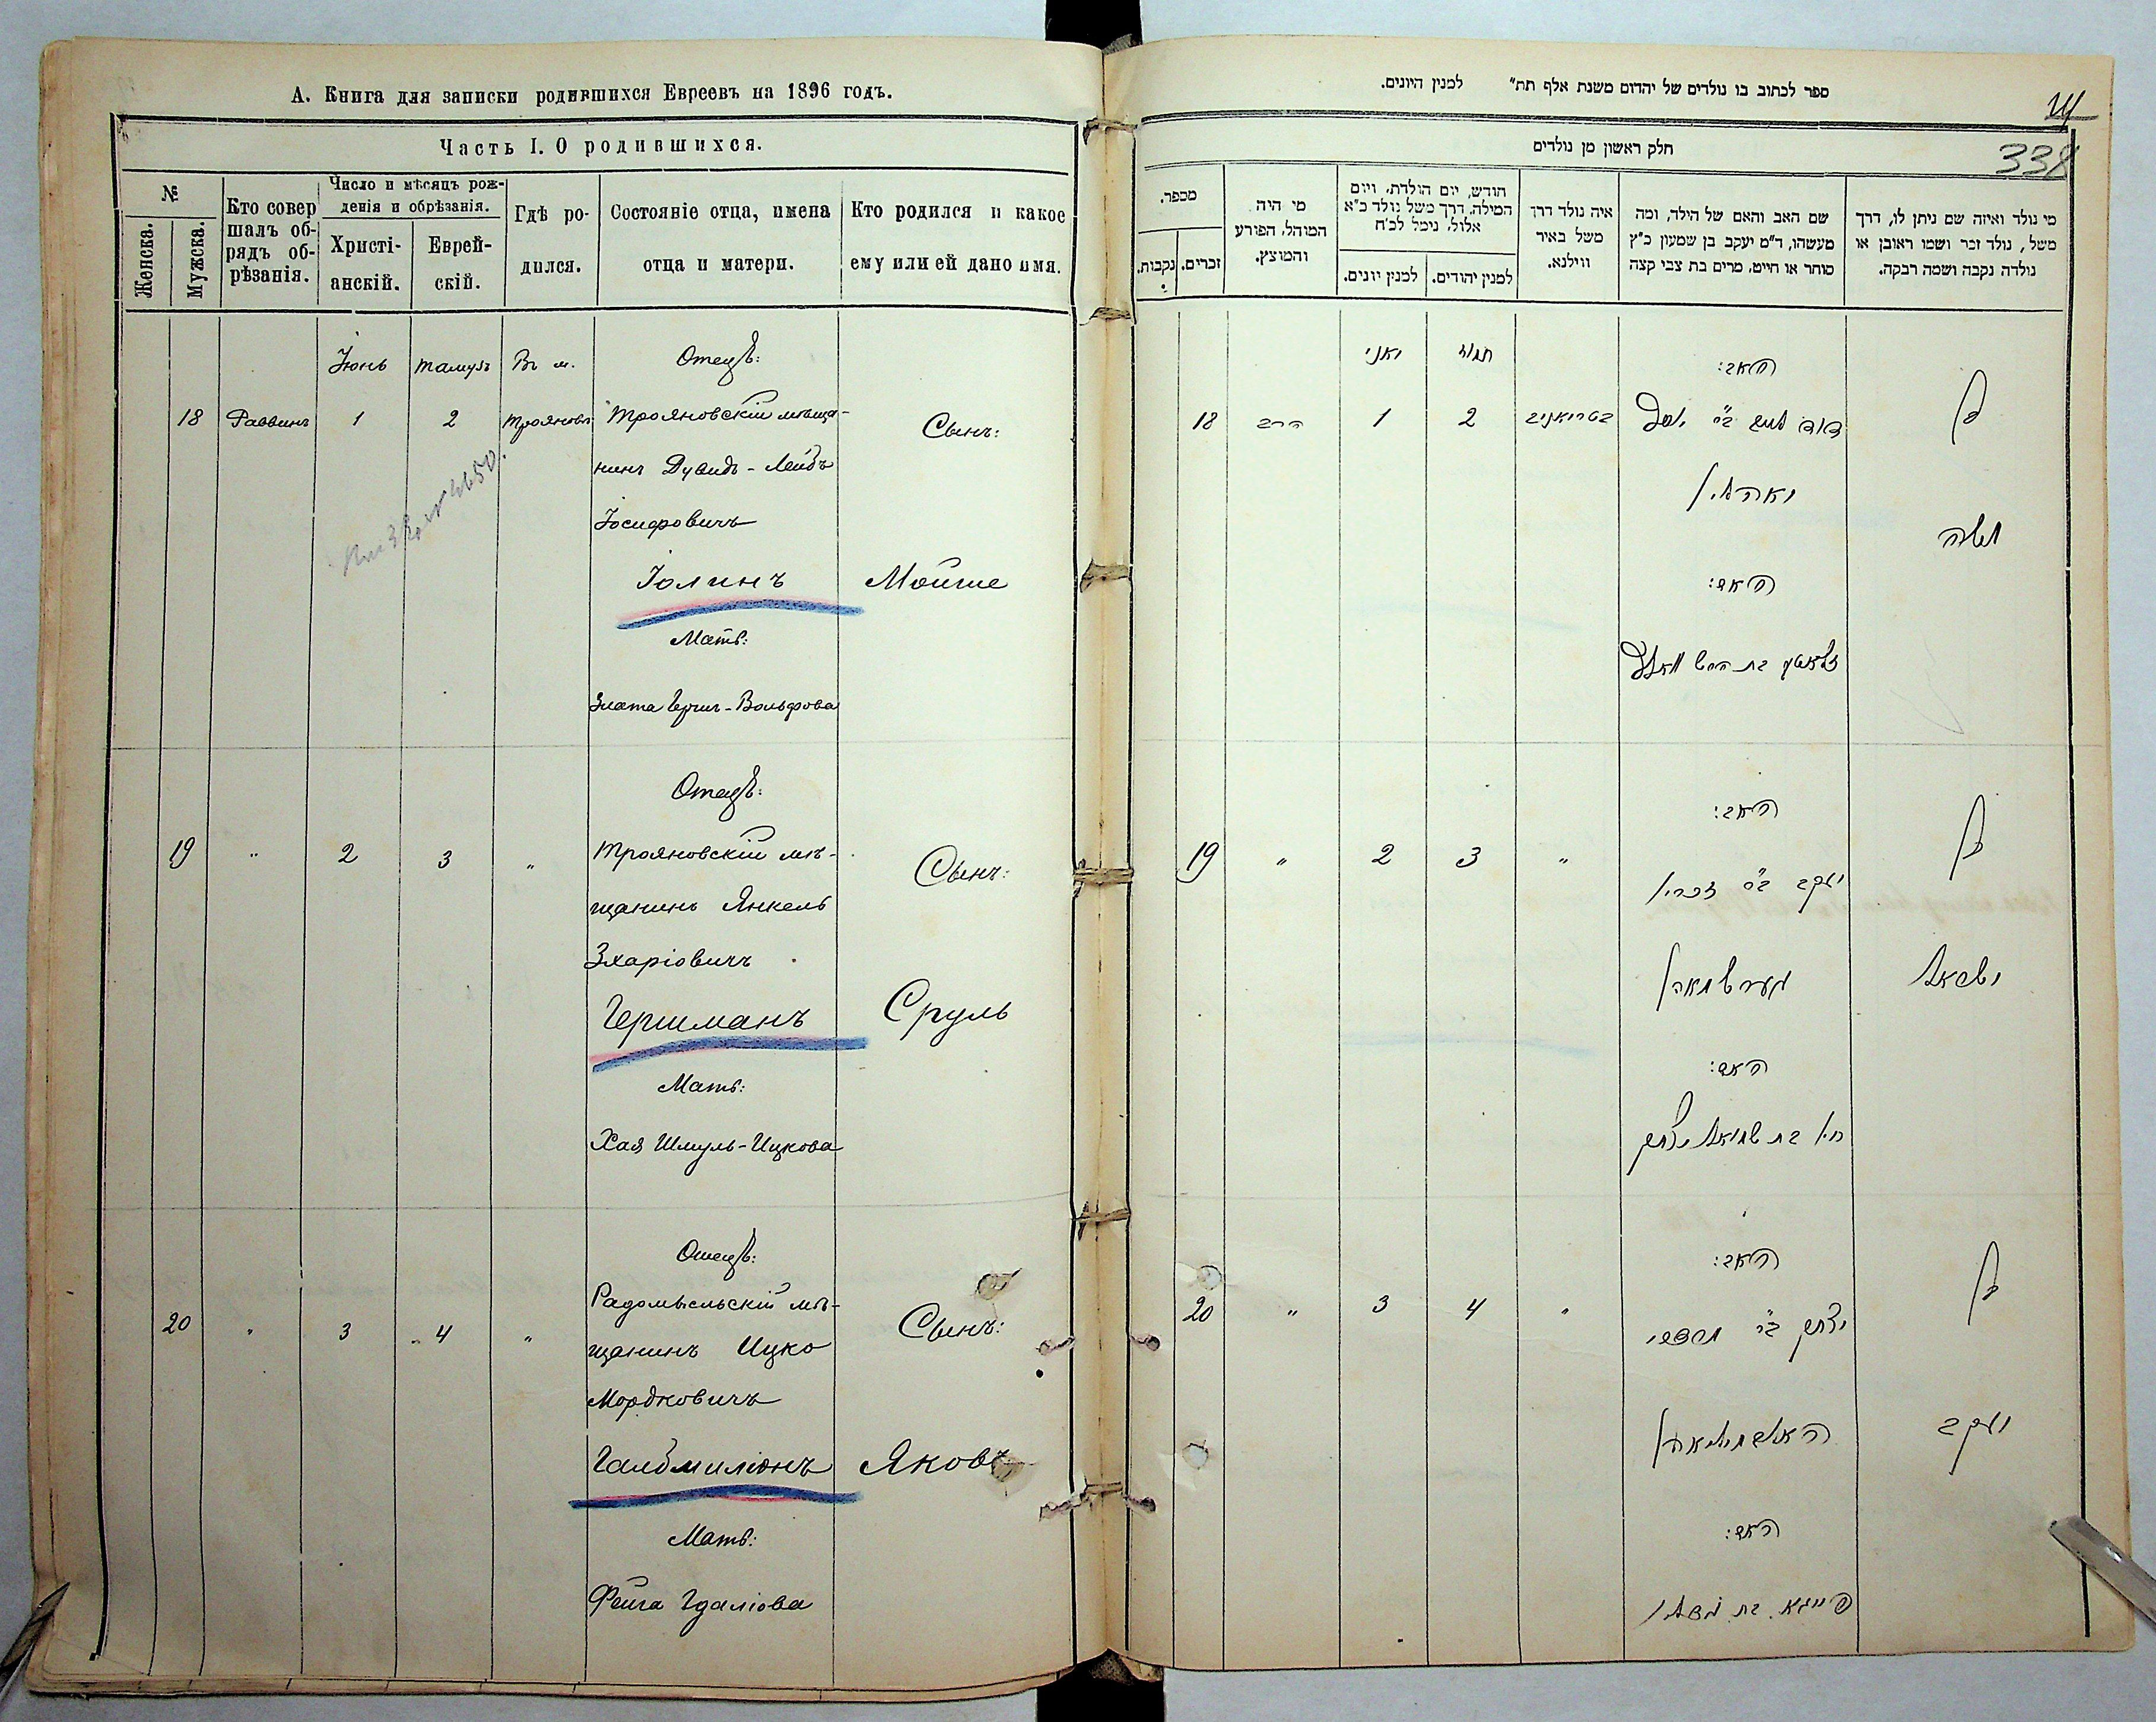 А. Книга для записки родившихся Евреевъ на 1896 годъ.
Часть I. О родившихся.
№
Женска.
Мужска.
Кто совер
шалъ об-
рядъ об-
рѣзанія.
Число и мѣсяцъ рож-
денія и обрѣзанія.
Христі-
анскій.
Еврей-
скій.
Гдѣ ро-
дился.
Состояніе отца, имена
отца и матери.
Кто родился и какое
ему или ей дано имя.
Іюнь Тамузъ Въ м. Отецъ:
18 Раввинъ 1 2 Трояновъ Трояновскій мѣща-
нинъ Дувидъ-Лейбъ
Іосифовичъ
Іолинъ
Мать:
Злата Герш-Вольфова
Сынъ:
Мойше
Отецъ:
19 " 2 3 " Трояновскій мѣ-
щанинъ Янкель
Зхаріовичъ
Гершманъ
Мать:
Хая Шмуль-Ицкова
Сынъ:
Сруль
Отецъ:
20 " 3 4 " Радомысльскій мѣ-
щанинъ Ицко
Мордковичъ
Галбмиліонъ
Мать:
Фейга Гдаліова
Сынъ:
Яковъ
ספר לכתוב בו נולדים של יהדום משנת אלף תת״ למנין היונים.
338
חלק ראשון מן נולדים
מי נולד ואיזה שם ניתן לו, דרך
משל, נולד זכר ושמו ראובן או
נולדה נקבה ושמה רבקה.
שם האב והאם של הילד, ומה
מעשהו, ד״מ יעקב בן שמעון כ״ץ
סוחר או חייט, מרים בת צבי קצה
איה נולד דרך
משל באיר
ווילנא.
חודש, יום הולדת, ויום
המילה, דרך משל נולד כ״א
אלול, נימל לכ״ח
למנין יהודים.
למנין יונים.
מי היה
המוהל, הפורע
והמוצץ.
מספר.
זכרים.
נקבות.
האב: תמוז יאני
בן דוד לייב ב״ר יוסף 2 1 הרב 18
משה
האם:
זלאטע בת הירש וואלף
האב:
בן יעקב ב״ר זכרי׳ " 3 2 " 19
ישראל
גערשמאן
האם:
חי׳ בת שמואל יצחק
האב:
בן יצחק ב״ר מרדכי " 4 3 " 20
יעקב
האלבמיליאן
האם:
פייגא בת גדלי׳